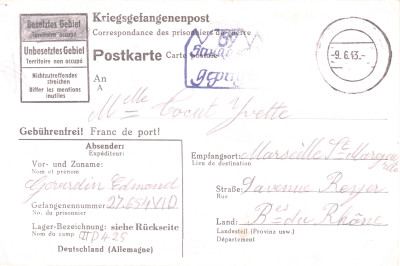 Besetztes Gebiet
Territoire occupé
Unbesetztes Gebiet
Territoire non occupé
Nichtzutreffendes
streichen
Biffer les mentions
inutiles
Kriegsgefangenenpost
Correspondance des prisonniers de guerre
Postkarte Carte postale
An
A
Melle Yvette
Gebührenfrei! Franc de port!
9.6.43.-
Absender:
Expéditeur:
Vor- und Zuname:
Nom et prénom
Edmond
Gefangenennummer: 27654 VI D
No. du prisonnier
Lager-Bezeichnung: siehe Rückseite
Nom du camp
Deutschland (Allemagne)
Empfangsort: Marseille Ste
Lieu de destination
Straße: avenue
Rue
Land: Bes du Rhône
Landesteil (Provinz usw.)
Département